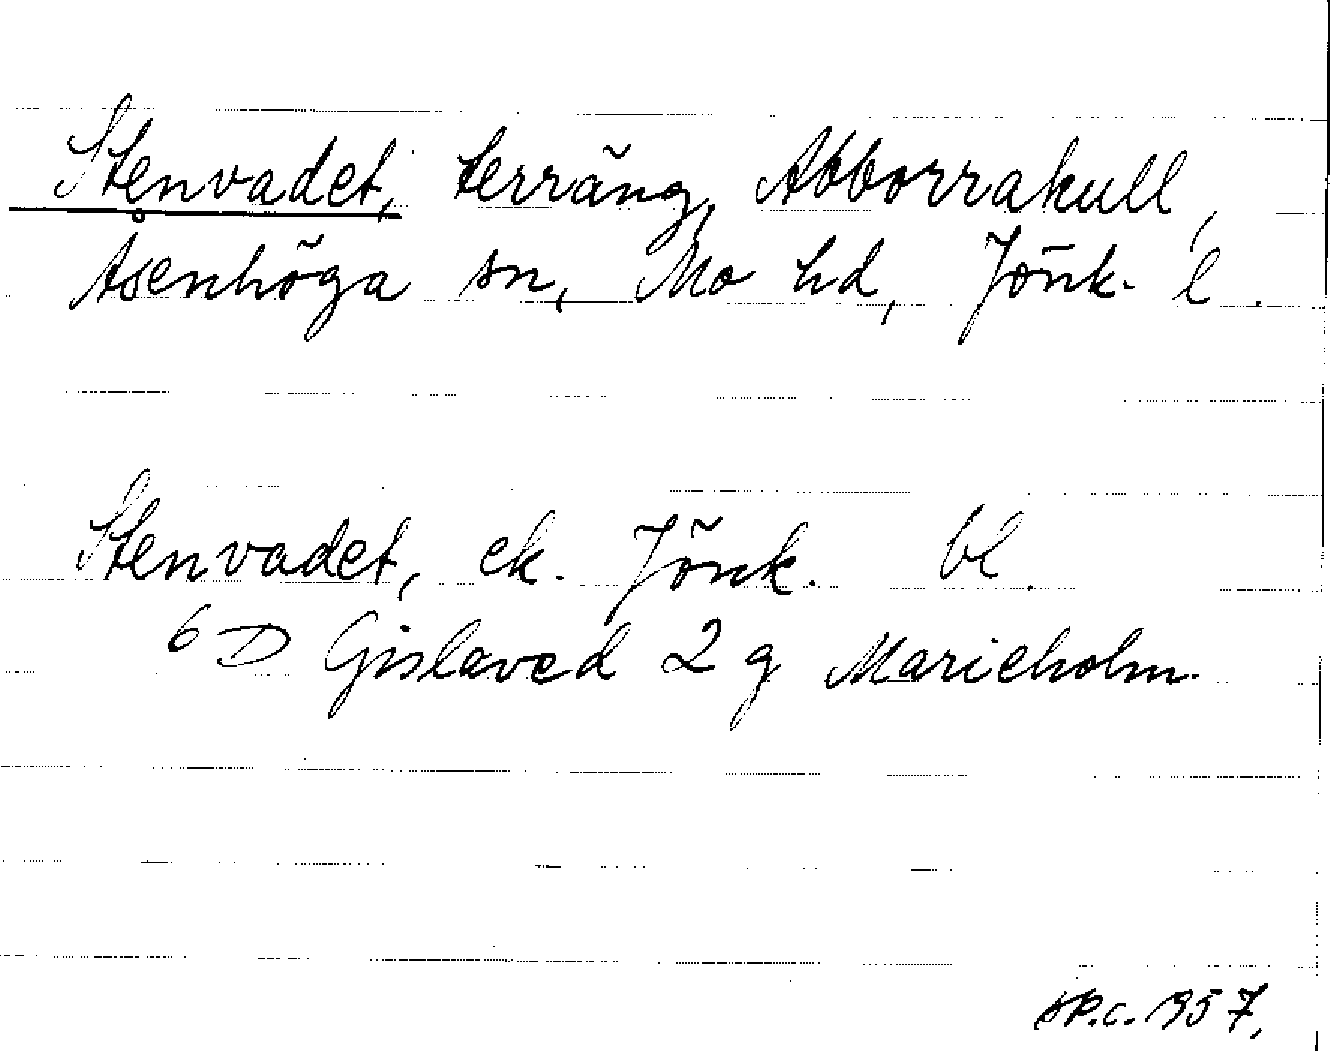 Stenvadet, terräng, Abborrakull,
Åsenhöga sn, Mo hd, Jönk. l.
Stenvadet, ek. Jönk. bl.
6 D Gislaved 2 g Marieholm.
SP.c. 1957.